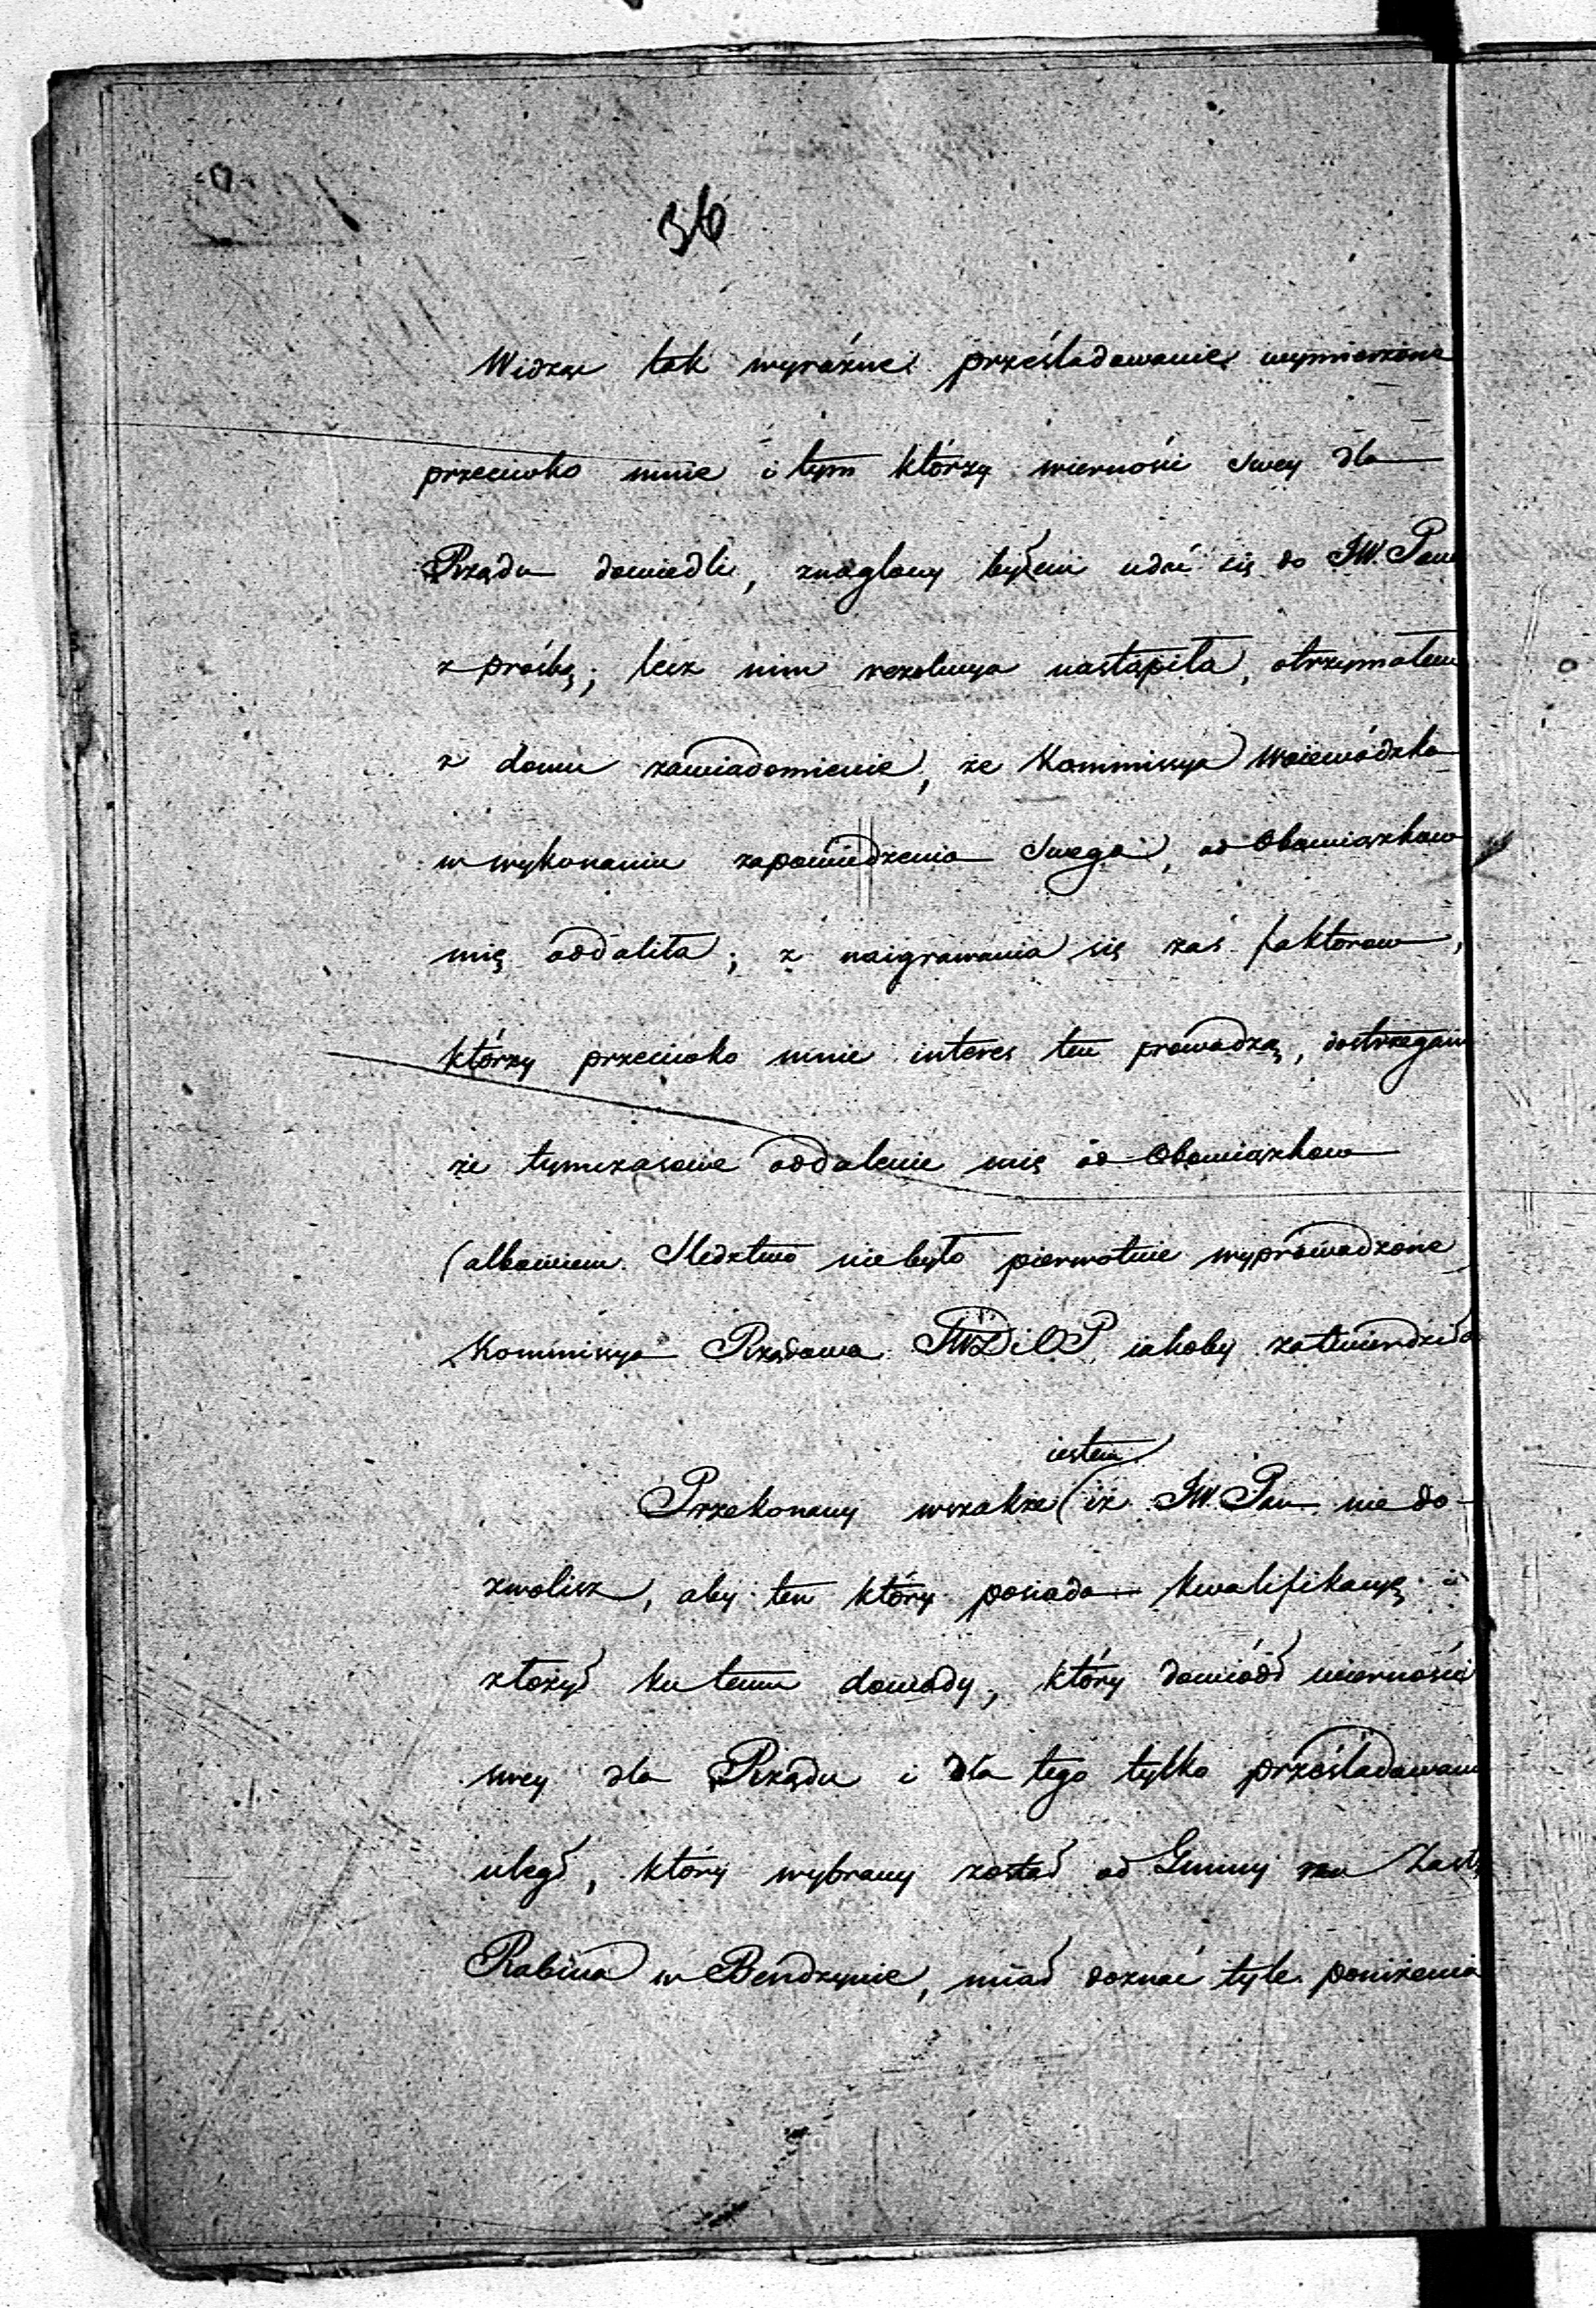 36
Widząc tak wyraźne prześladowanie wymierzone
przeciwko mnie i tym którzy wierność swey dla
Rządu dowiedli, znaglony byłem udać się do JW. Pana
z prośbą; lecz nim rezolucya nastąpiła, otrzymałem
z domu zawiadomienie, że Kommissya Woiewódzka
w wykonaniu zapowiedzenia Swego, od Obowiązkow
mię oddaliła; z naigrawania się zaś faktorow,
którzy przeciwko mnie interes ten prowadzą, dostrzegam
że tymczasowe oddalenie mię od Obowiązkow
(albowiem Śledztwo niebyło pierwotnie wyprowadzone
Kommissya Rządowa SWD i OP iakoby zatwierdziła
iestem
Przekonany wszakże (iż JW. Pan nie do-
zwolisz, aby ten który posiada kwalifikacyę i
złożył ku temu dowody, który dowiódł wierności
swey dla Rządu i dla tego tylko prześladowaniu
uległ, który wybrany został od Gminy na Zast
Rabina w Bendzynie, miał doznać tyle poniżenia